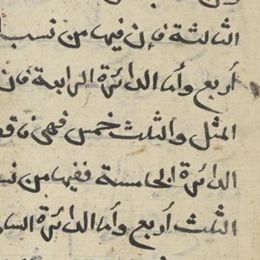 الثالثة فإن فيها من نسب
أربع وأما الدائرة الرابعة فان
المثل والثلث خمس فهى ناقص
الدائرة الخامسة ففيها من نس
الثلث أربع وأما الدائرة السا